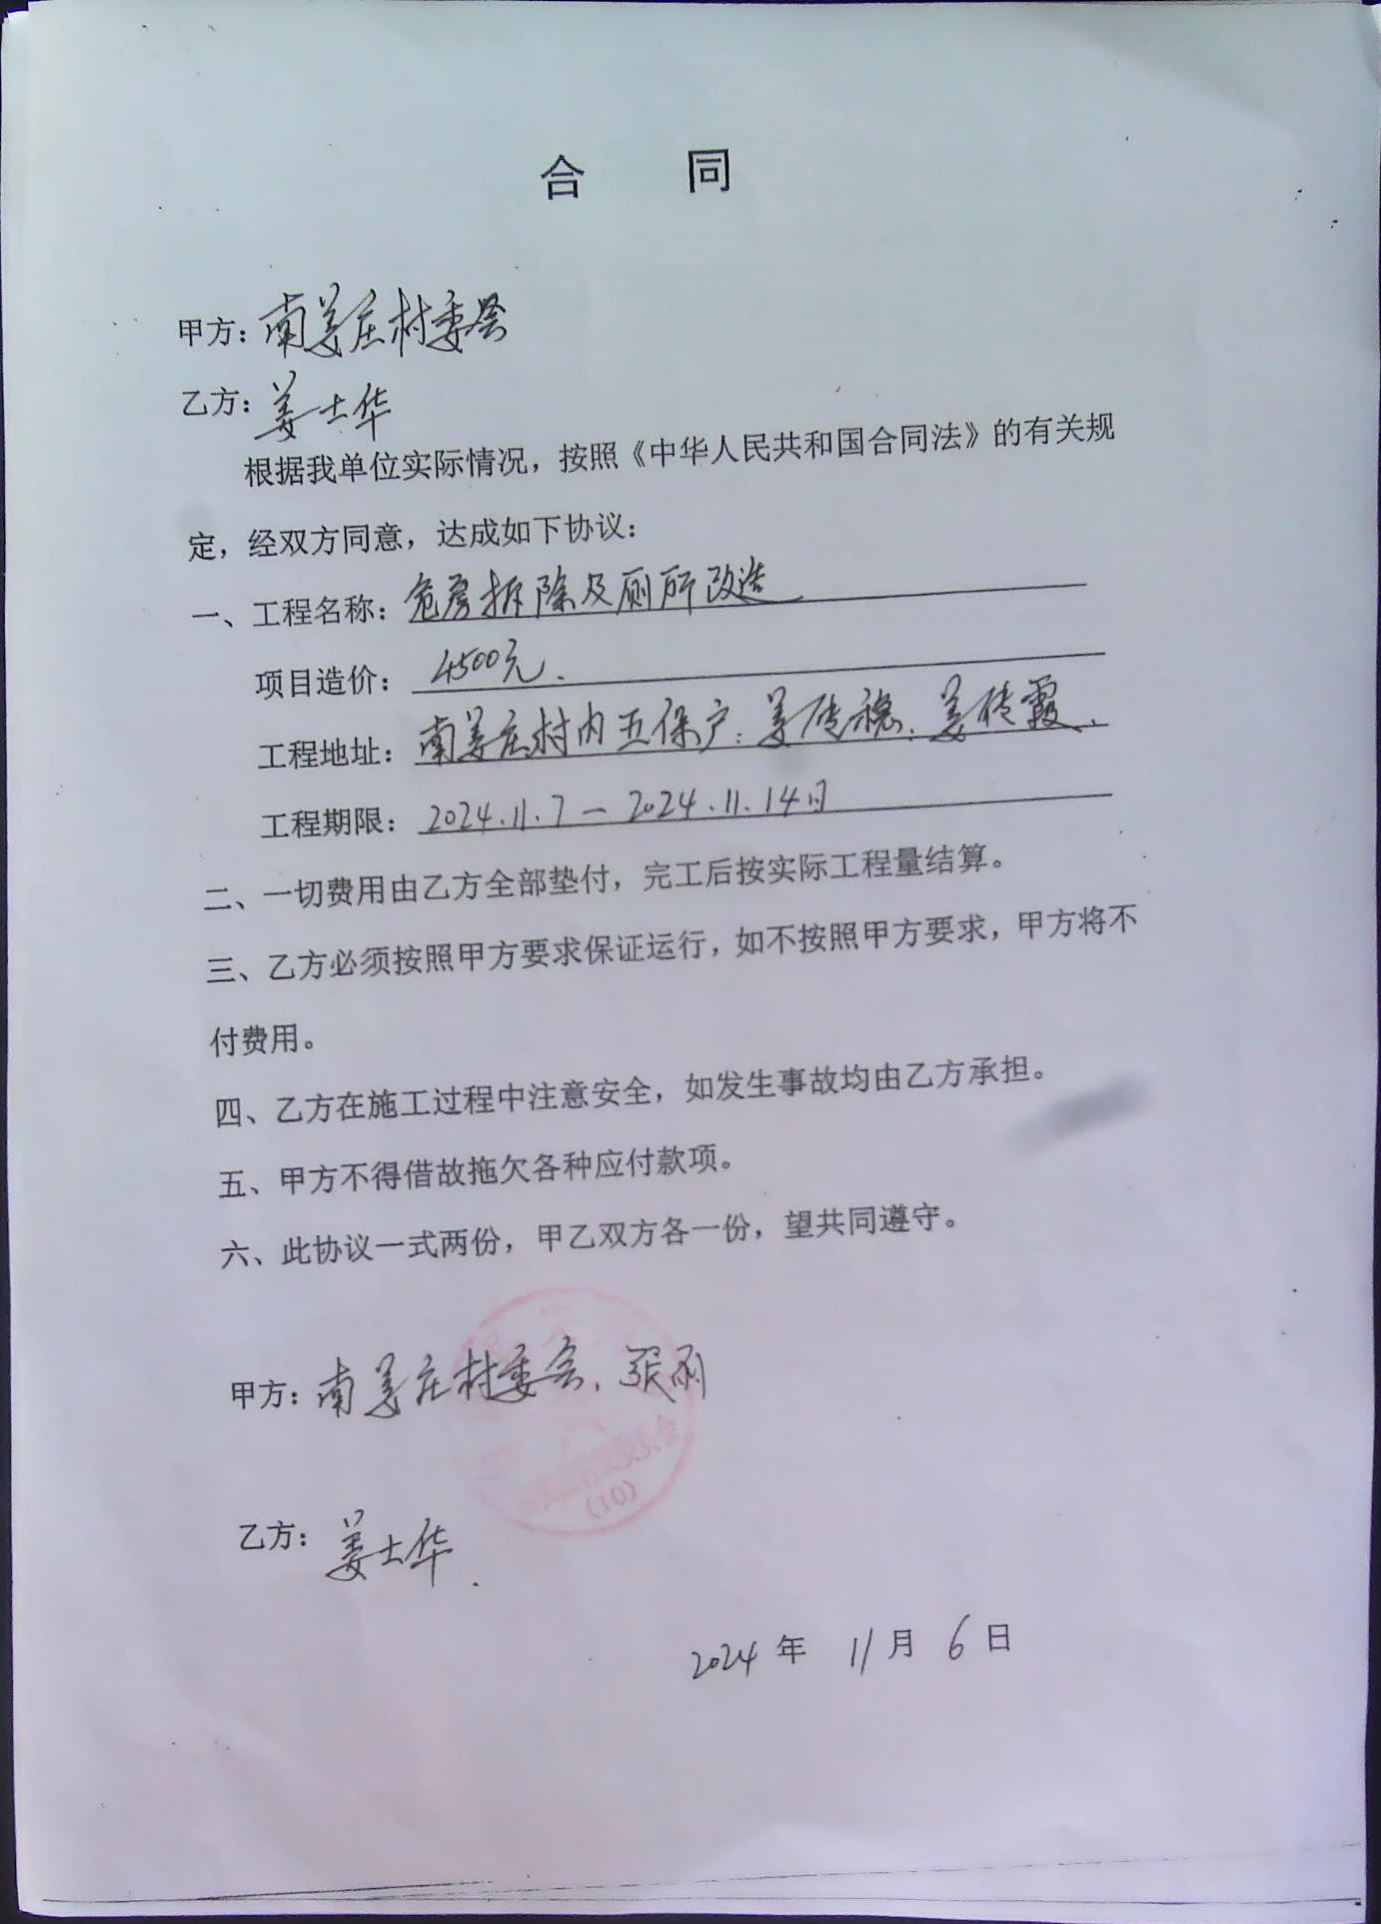 合 同
甲方：南姜庄村委会
乙方：姜士华
根据我单位实际情况，按照《中华人民共和国合同法》的有关规
定，经双方同意，达成如下协议：
一、工程名称：危房拆除及厕所改造
项目造价：4500元.
工程地址：南姜庄村内五保户：姜传稳、姜传霞、
工程期限：2024.11.7－2024.11.14日
二、一切费用由乙方全部垫付，完工后按实际工程量结算。
三、乙方必须按照甲方要求保证运行，如不按照甲方要求，甲方将不
付费用。
四、乙方在施工过程中注意安全，如发生事故均由乙方承担。
五、甲方不得借故拖欠各种应付款项。
六、此协议一式两份，甲乙双方各一份，望共同遵守。
甲方：南姜庄村委会、张雨
村民委员会
(10)
乙方：姜士华.
2024年 11月 6日